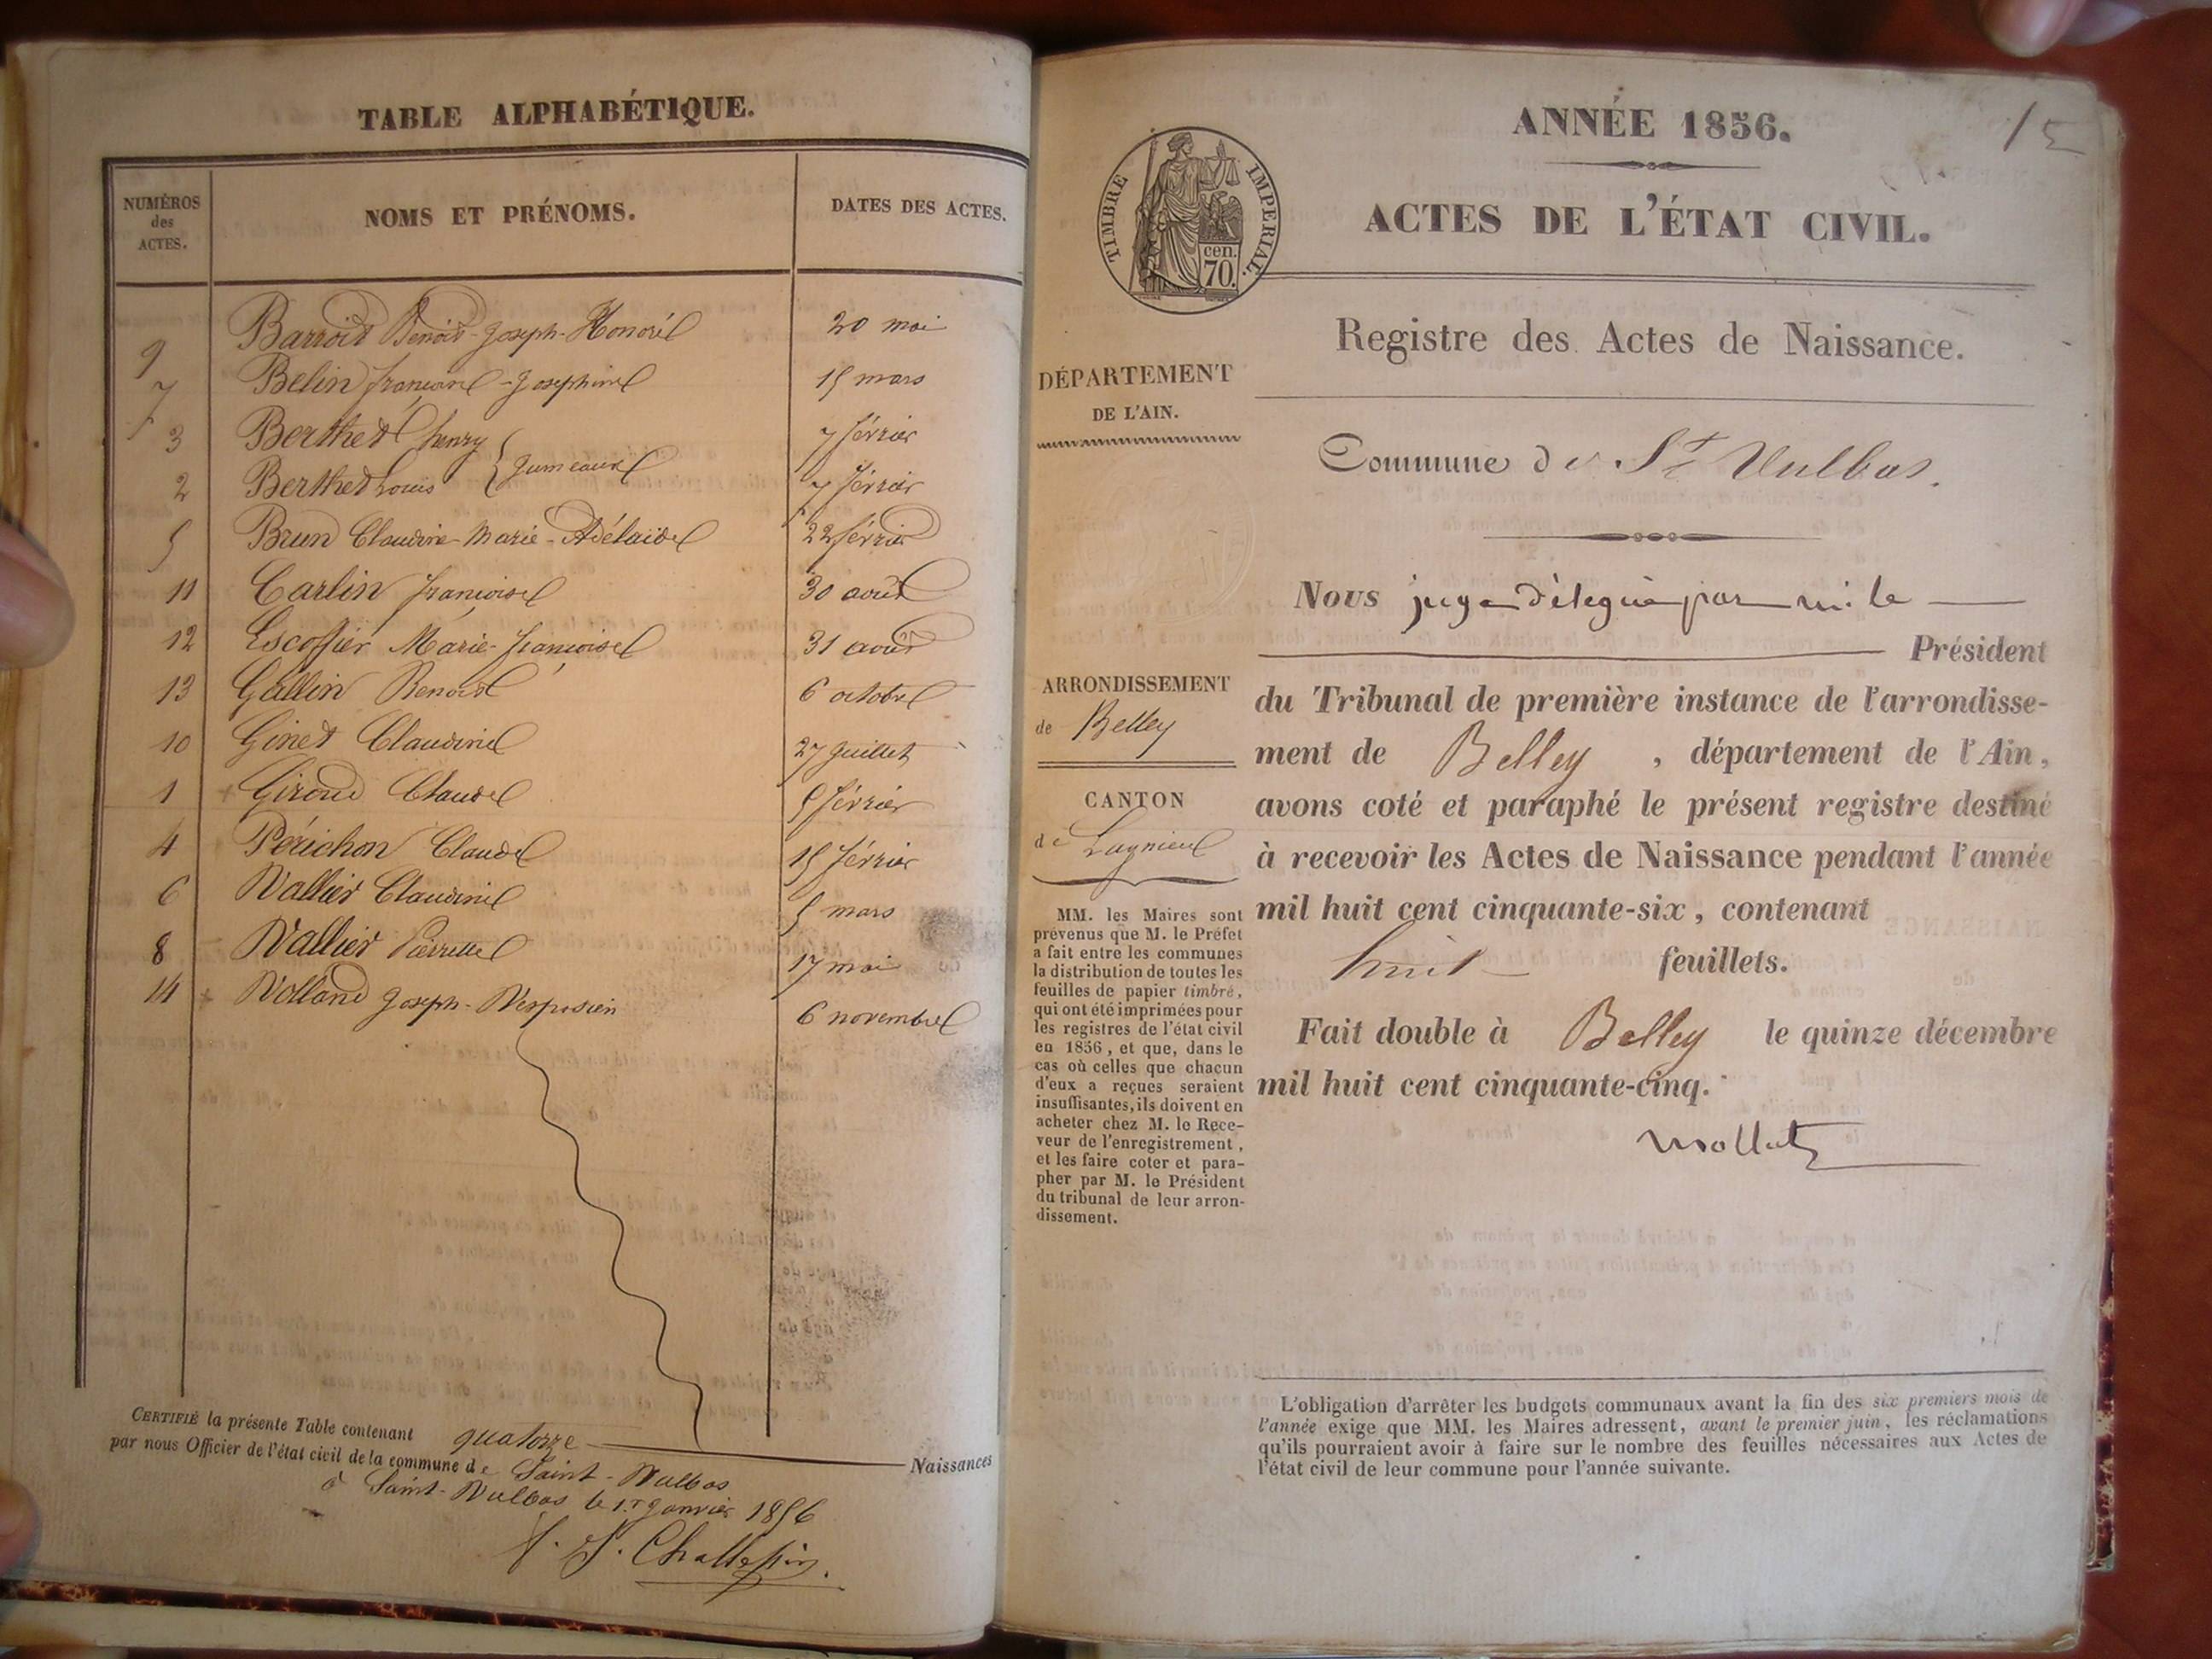 TABLE ALPHABÉTIQUE.
NUMÉROS des ACTES.
NOMS ET PRÉNOMS.
DATES DES ACTES.
9 Barroit Benoit-Joseph-Honoré 20 mai
7 Belin françoise-Josephine 15 mars
3 Berthet henry 7 février
jumeaux
2 Berthet Louis 7 février
5 Brun Claudine-Marie-Adélaïde 22 février
11 Carlin françoise 30 août
12 Escoffier Marie-françoise 31 août
13 Gallin Benoist 6 octobre
10 Ginet Claudine 27 Juillet
1 Giroud Claude 5 février
4 Périchon Claude 15 février
6 Vallier Claudine 5 mars
8 Vallier Pierrette 17 mai
14 Volland Joseph-Vespasien 6 novembre
CERTIFIÉ la présente Table contenant quatorze Naissances
par nous Officier de l'état civil de la commune de Saint-Vulbas
à Saint-Vulbas le 1.er Janvier 1856
15
ANNÉE 1856.
TIMBRE IMPÉRIAL.
cen.
70.
ACTES DE L'ÉTAT CIVIL.
Registre des Actes de Naissance.
DÉPARTEMENT
DE L'AIN.
Commune de St Vulbas.
ARRONDISSEMENT
de Belley
CANTON
de Lagnieu
MM. les Maires sont
prévenus que M. le Préfet
a fait entre les communes
la distribution de toutes les
feuilles de papier timbré,
qui ont été imprimées pour
les registres de l'état civil
en 1856, et que, dans le
cas où celles que chacun
d'eux a reçues seraient
insuffisantes, ils doivent en
acheter chez M. le Rece-
veur de l'enregistrement,
et les faire coter et para-
pher par M. le Président
du tribunal de leur arron-
dissement.
Nous juge délégué par m. le
Président
du Tribunal de première instance de l'arrondisse-
ment de Belley, département de l'Ain,
avons coté et paraphé le présent registre destiné
à recevoir les Actes de Naissance pendant l'année
mil huit cent cinquante-six, contenant
huit feuillets.
Fait double à Belley le quinze décembre
mil huit cent cinquante-cinq.
L'obligation d'arrêter les budgets communaux avant la fin des six premiers mois de
l'année exige que MM. les Maires adressent, avant le premier juin, les réclamations
qu'ils pourraient avoir à faire sur le nombre des feuilles nécessaires aux Actes de
l'état civil de leur commune pour l'année suivante.